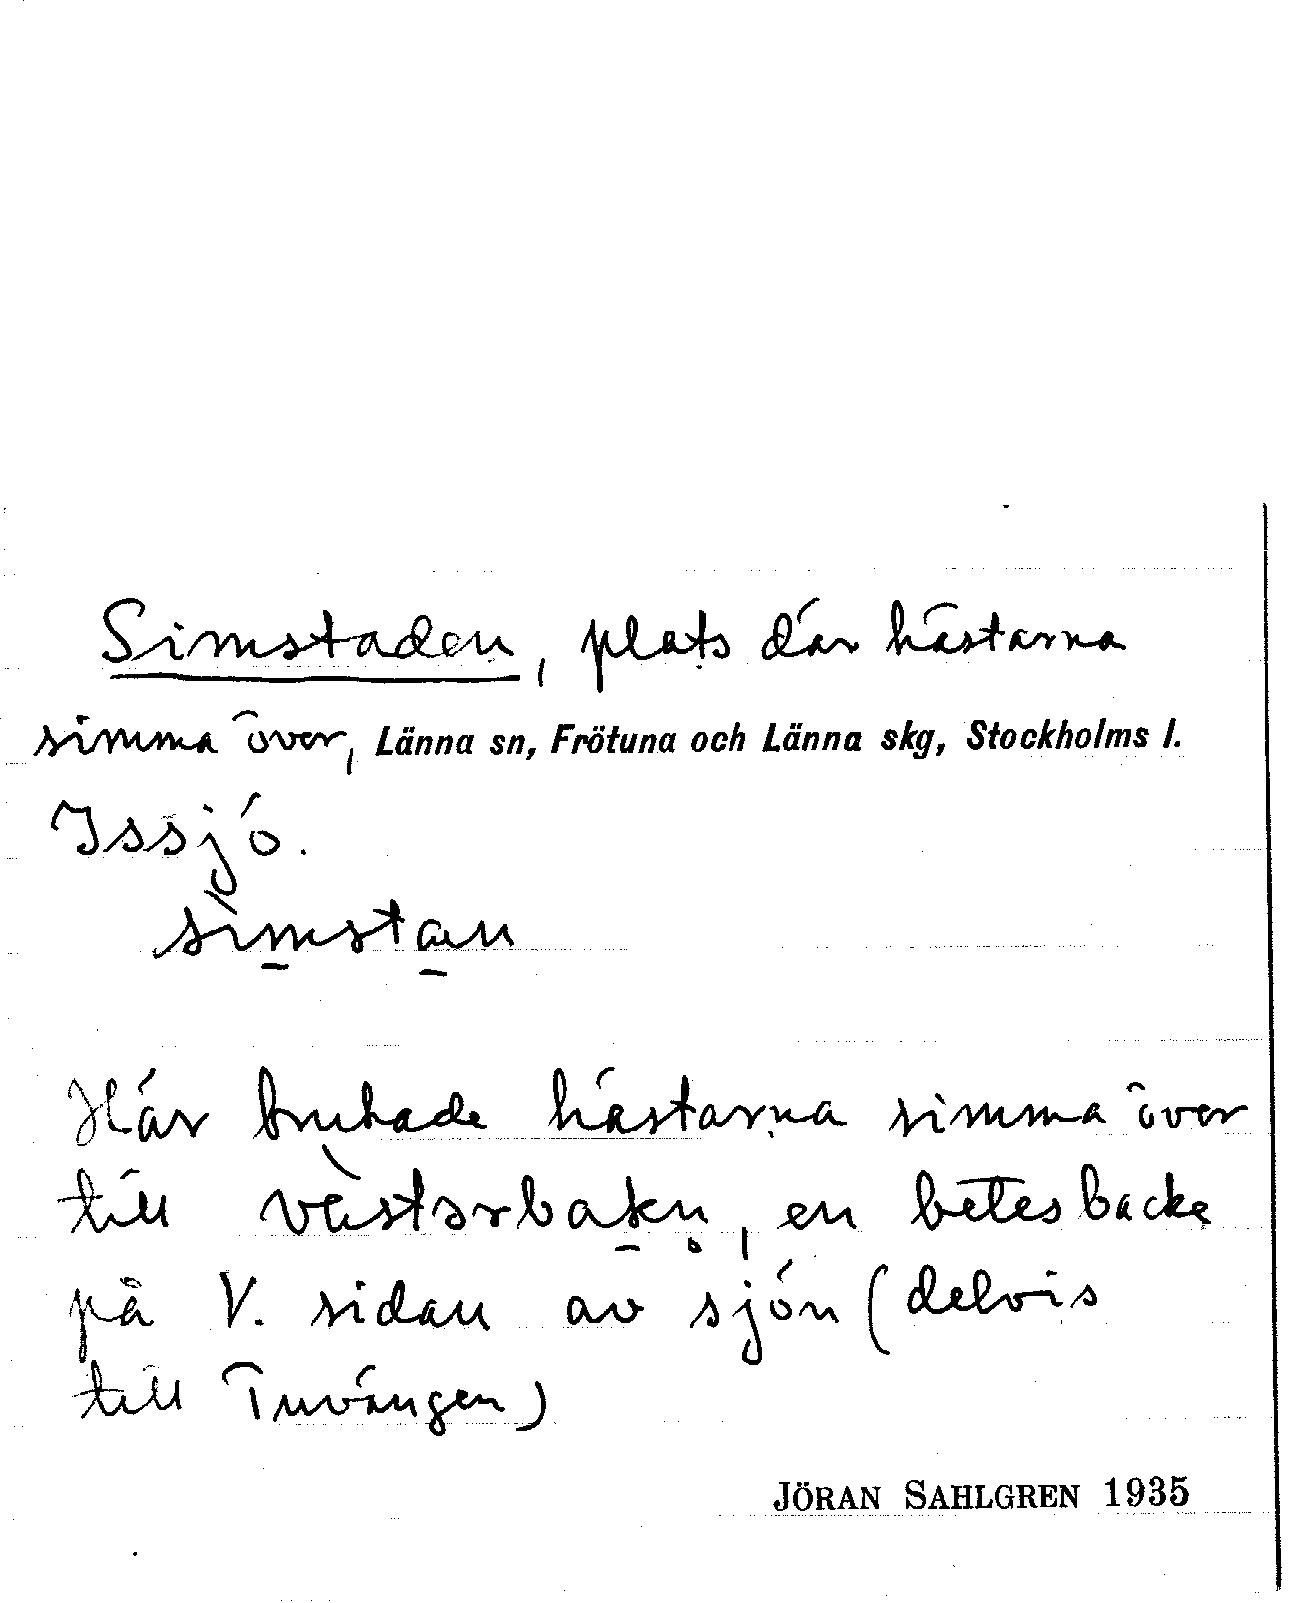 Simstaden, plats där hästarna
simma över, Länna sn, Frötuna och Länna skg, Stockholms l.
Issjö.
sìmstan
Här brukade hästarna simma över
till västərbakn̥, en betesbacke
på V. sidan av sjön (delvis
till Tuvängen)
JÖRAN SAHLGREN 1935